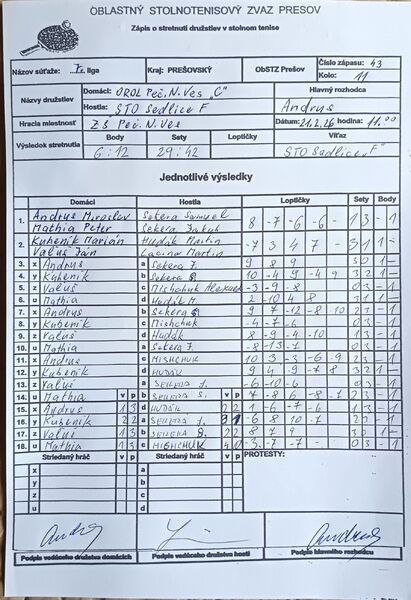 OBLASTNÝ STOLNOTENISOVÝ ZVAZ PRESOV
Zápis o stretnutí družstiev v stolnom tenise
Názov súťaže: liga Kraj: PREŠOVSKÝ ObSTZ Prešov Číslo zápasu: 43
Kolo: 11
Názvy družstiev Domáci: OROL Peč. N. Ves "C" Hlavný rozhodca
Hostia: STO Sedlice F Andrus
Hracia miestnosť ZŠ Peč. N. Ves Dátum: 21.2.26 hodina 11.00
Výsledok stretnutia Body Sety Loptičky Víťaz
6:12 29:42 STO Sedlice "F"
Jednotlivé výsledky
Domáci Hostia Loptičky Sety Body
1. Andrus Miroslav Sekera Samuel 8 -7 -6 -6 - 1 3 - 1
Mathia Peter Sekera Jakub
2. Kubeník Marián Hudák Martin -7 3 4 7 - 3 1 1 -
Valuš Ján Lacina Martin
3. x Andrus a Sekera J. 9 8 9 3 0 1 -
4. y Kubeník b Sekera S. 10 -4 9 -4 9 3 2 1 -
5. z Valuš c Mishchuk -3 -9 -8 0 3 - 1
6. u Mathia d Hudák M. 2 -10 4 8 3 1 1 -
7. x Andrus b Sekera S. 9 7 -12 -8 -10 2 3 - 1
8. y Kubeník c Mishchuk -4 -7 -6 0 3 - 1
9. z Valuš d Hudák 8 -9 -4 -10 1 3 - 1
10. u Mathia a Sekera J. -8 -13 -7 0 3 - 1
11. x Andrus c MISHCHUK 10 3 -3 -6 -9 2 3 - 1
12. y Kubeník d HUDÁK 9 4 -9 -7 8 3 2 1 -
13. z Valuš a SEKERA J. -6 -10 -6 0 3 - 1
14. u Mathia v p b SEKERA S. v p 7 -8 6 -8 -7 2 3 - 1
15. x Andrus 1 3 d HUDÁK 2 2 1 -6 -7 -6 1 3 - 1
16. y Kubeník 2 2 a SEKERA J. 3 1 -6 8 10 -7 2 3 - 1
17. z Valuš 1 3 b SEKERA S. 2 2 8 7 9 3 0 1 -
18. u Mathia 1 3 c MISHCHUK 4 0 -3 -7 -7 0 3 - 1
Striedaný hráč v p Striedaný hráč v p PROTESTY:
x a
y b
z c
u d
Podpis vedúceho družstva domácich Podpis vedúceho družstva hostí Podpis hlavného rozhodcu